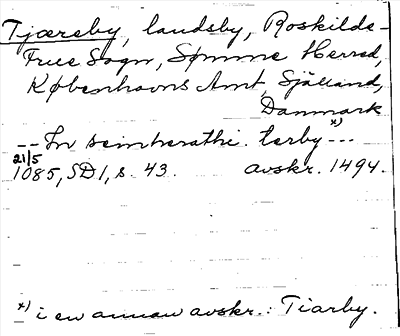 Tjæreby, landsby, Roskilde-
Frue Sogn, Sømme Herred,
Københavns Amt, Själland,
Danmark
-- In seimherathi. terby *) ---
21/5
1085, SD 1, s. 43. avskr. 1494.
*) i en annan avskr.: Tiarby.